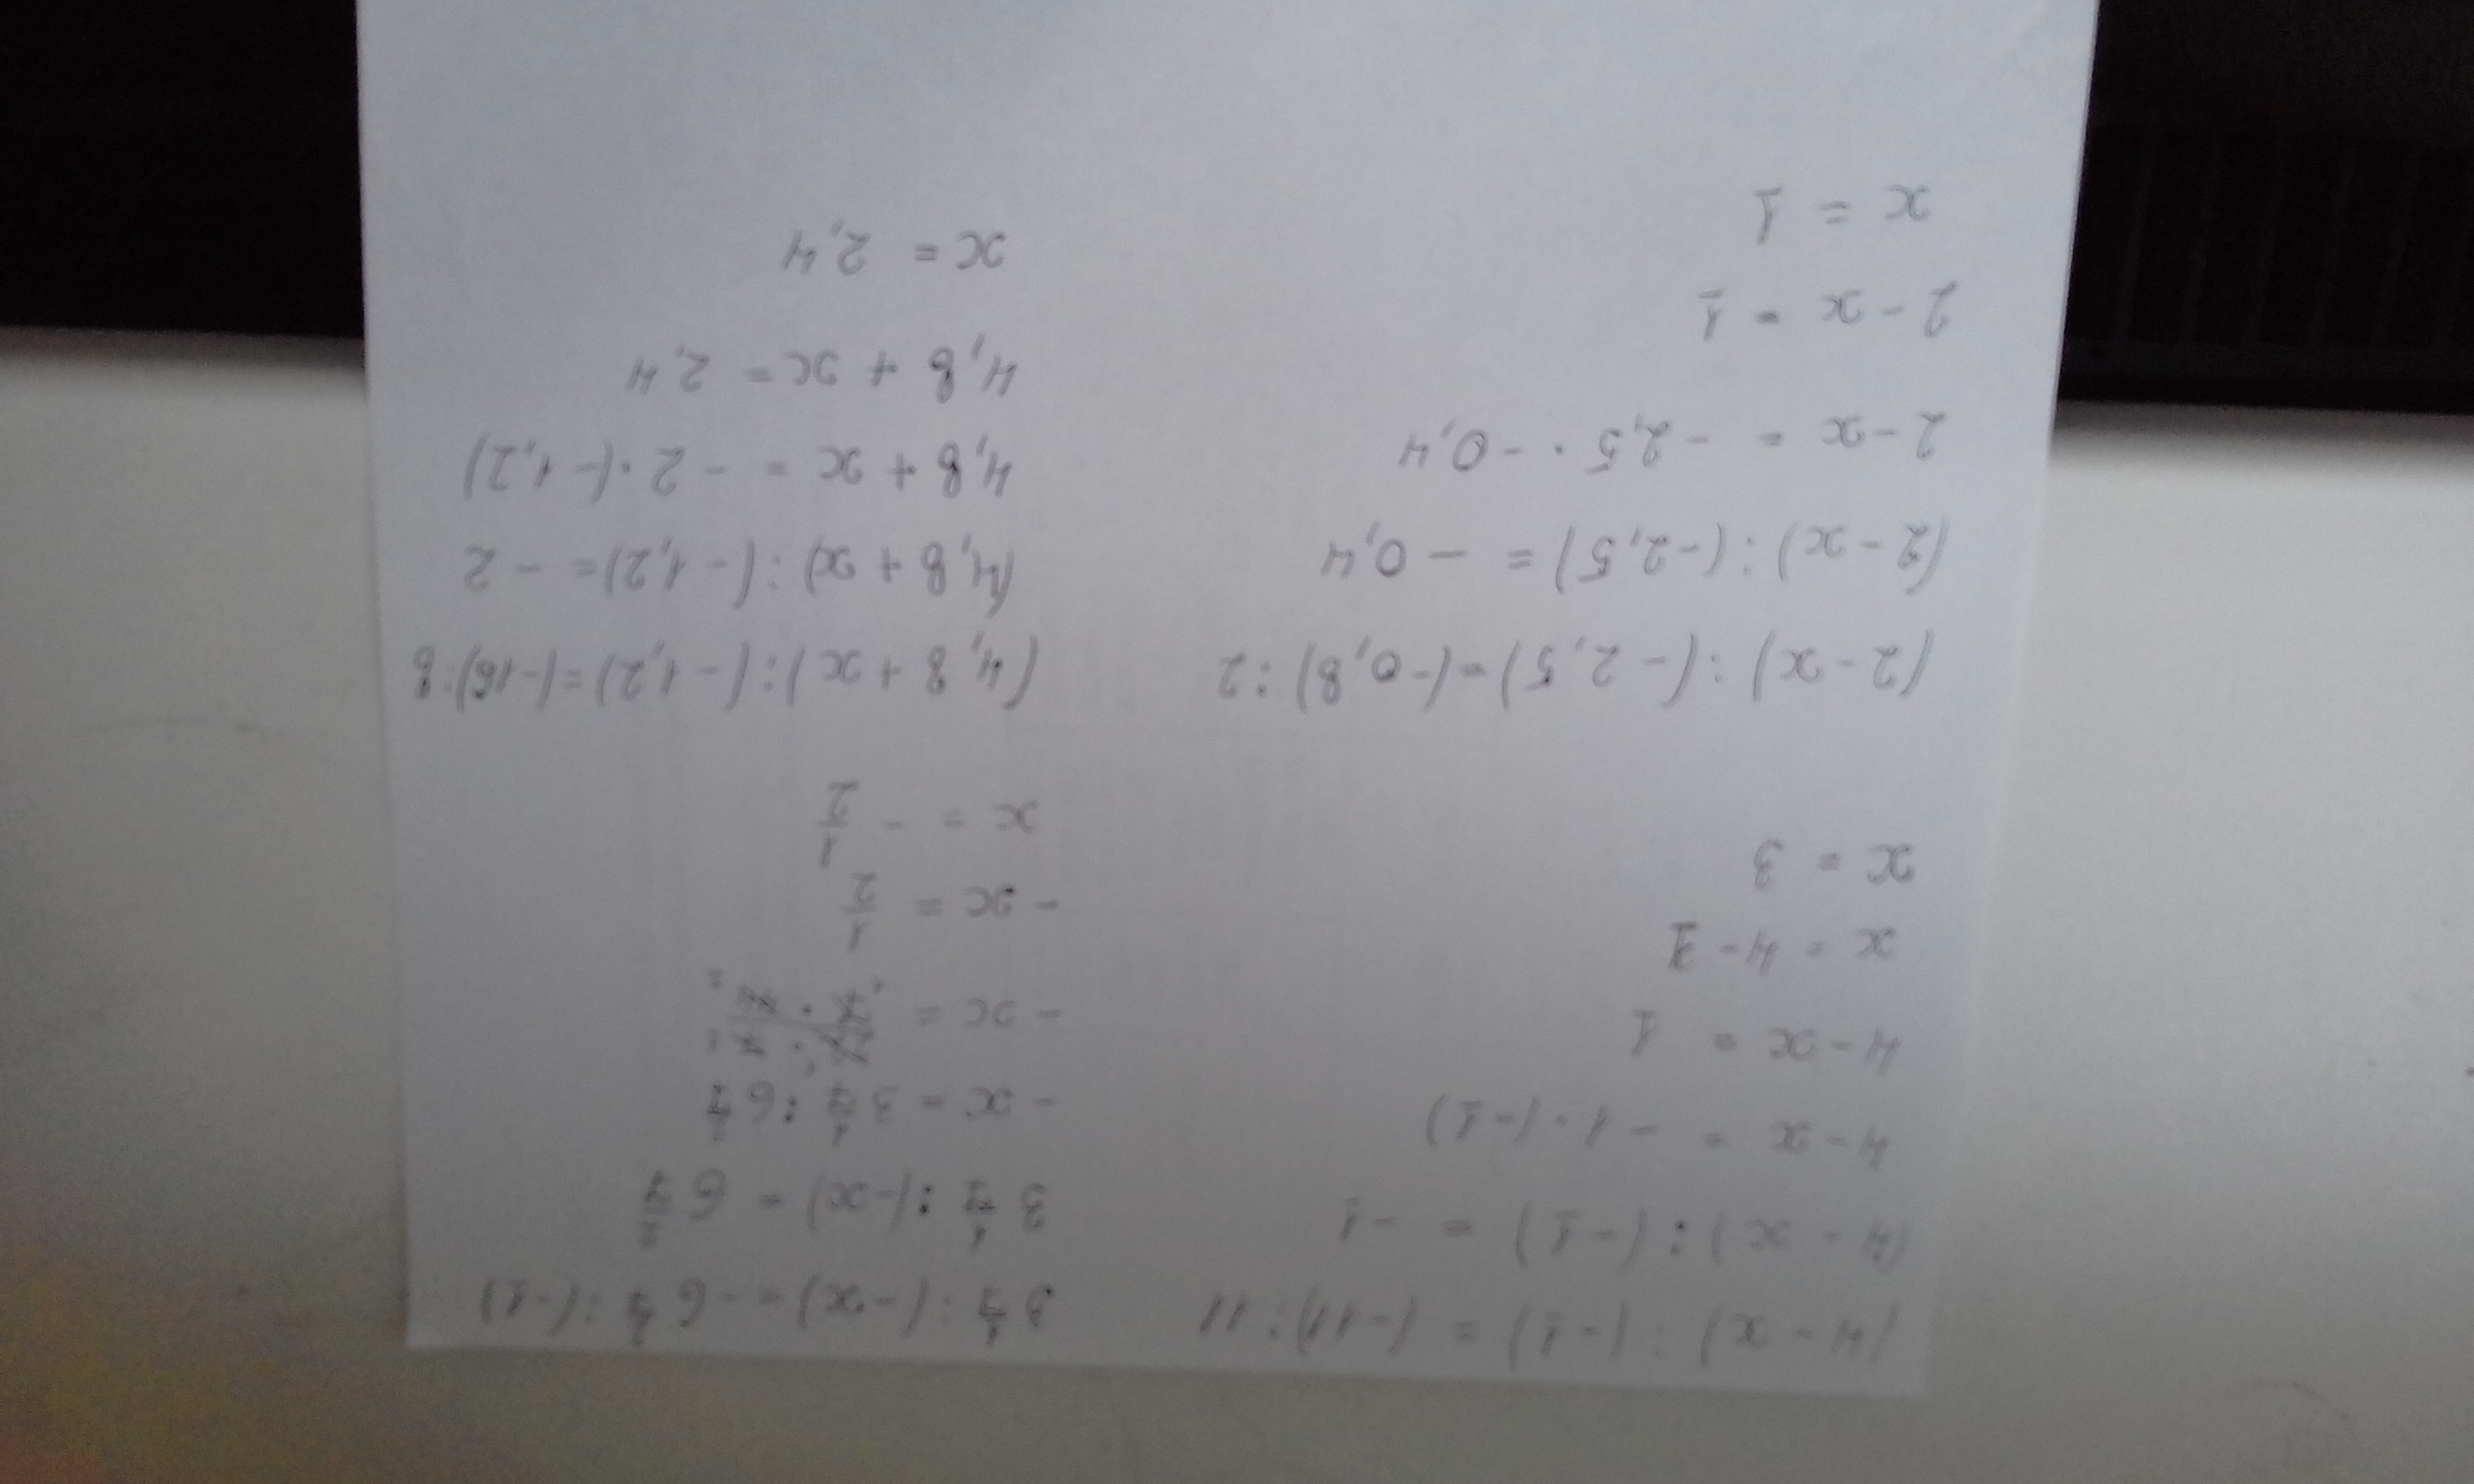 (4 - x) : (-1) = (-11) : 11
(4 - x) : (-1) = -1
4 - x = -1 · (-1)
4 - x = 1
x = 4 - 1
x = 3
3 1/7 : (-x) = -6 2/7 : (-1)
3 1/7 : (-x) = 6 2/7
-x = 3 1/7 : 6 2/7
-x =
-x = 1/2
x = - 1/2
(2 - x) : (-2,5) = (-0,8) : 2
(2 - x) : (-2,5) = -0,4
2 - x = -2,5 · -0,4
2 - x = 1
x = 1
(4,8 + x) : (-1,2) = (-16) : 8
(4,8 + x) : (-1,2) = -2
4,8 + x = -2 · (-1,2)
4,8 + x = 2,4
x = 2,4